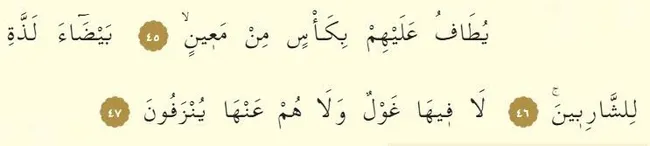 يُطَافُ عَلَيْهِمْ بِكَأْسٍ مِنْ مَع۪ينٍۙ ﴿٤٥﴾ بَيْضَٓاءَ لَذَّةٍ
لِلشَّارِب۪ينَۚ ﴿٤٦﴾ لَا ف۪يهَا غَوْلٌ وَلَا هُمْ عَنْهَا يُنْزَفُونَ ﴿٤٧﴾